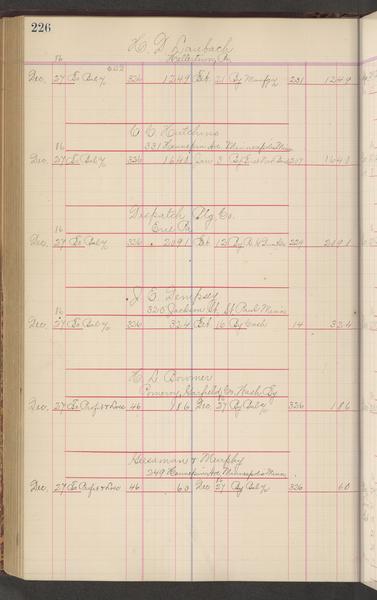 226
H. D. Laubach
Hellertown, Pa
16
Dec. 27 To Bal 326 1249 Feb 21 By 231 1249
C. C. Hutchins
331 Hennepin Ave. Minneapolis Minn
16
Dec. 27 To Bal 326 1640 Jan 3 By 1640
Despatch Mfg. Co.
Erie Pa
16
Dec. 27 To Bal 326 2091 Feb 12 By 229 2091
J. E. Dempsey
320 Jackson St. St Paul Minn
16
Dec. 27 To Bal 326 324 Feb 16 By Cash 14 324
H. D. Bowmer
Pomeroy, Garfield Co. Wash
Dec. 27 To Profit & Loss 46 186 Dec 27 By Bal 326 186
& Murphy
249 Hennepin Ave, Minneapolis Minn
Dec. 27 To Profit & Loss 46 60 Dec 27 By Bal 326 60